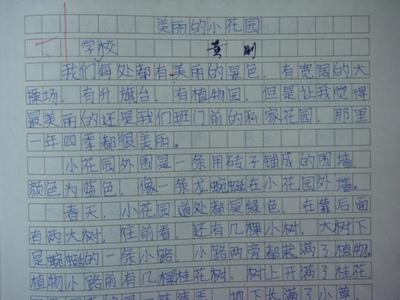 美丽的小花园
学校 黄刚
我们每处都有美丽的景色。有宽阔的大
操场，有升旗台，有植物园，但是让我觉得
最美丽的还是我们班门前的私家花园，那里
一年四季都很美丽。
小花园外围是一条用砖子铺成的围墙
颜色为蓝色，像一条龙蜿蜒在小花园外墙。
春天，小花园道处都是绿色，在靠后面
有两大树。往前看，还有几棵小树，大树下
是蜿蜒的一条小路，小路两旁都栽满了植物。
植物小路前有几棵桂花树，树上开满了桂花，